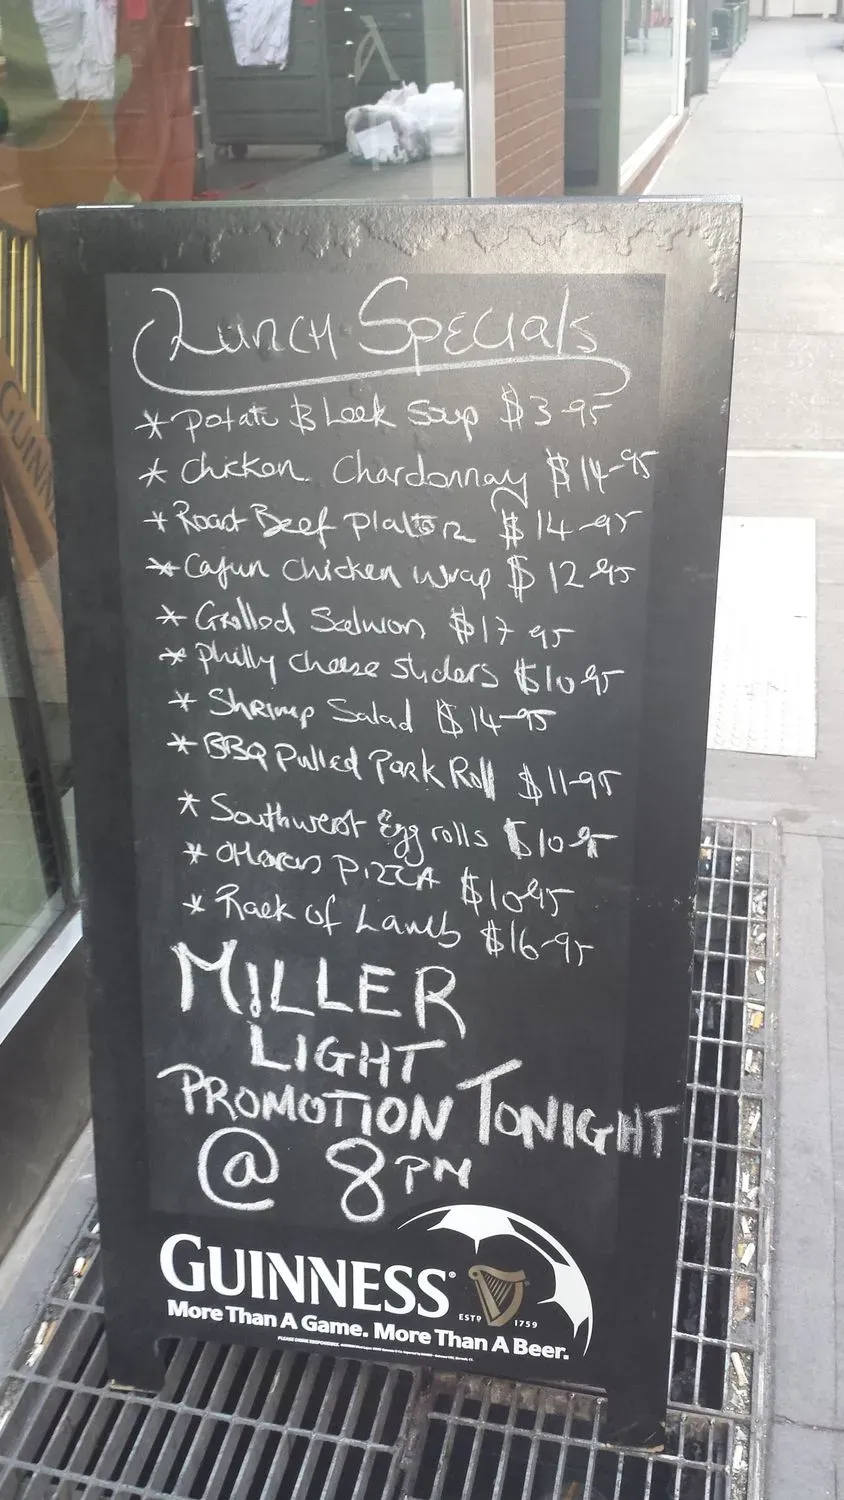 Lunch Specials
* Potato & Leek Soup $3.95
* Chicken Chardonnay $14-95
* Roast Beef Platter $14-95
* Cajun Chicken Wrap $12.95
* Grilled Salmon $17 95
* Philly Cheese Sliders $10.95
* Shrimp Salad $14-95
* BBQ Pulled Pork Roll $11-95
* Southwest Egg rolls $10.95
* OHaras PIZZA $10.95
* Rack of Lamb $16-95
MILLER
LIGHT
PROMOTION TONIGHT
@ 8PM
GUINNESS®
ESTD 1759
More Than A Game. More Than A Beer.
PLEASE DRINK RESPONSIBLY.
GUINN